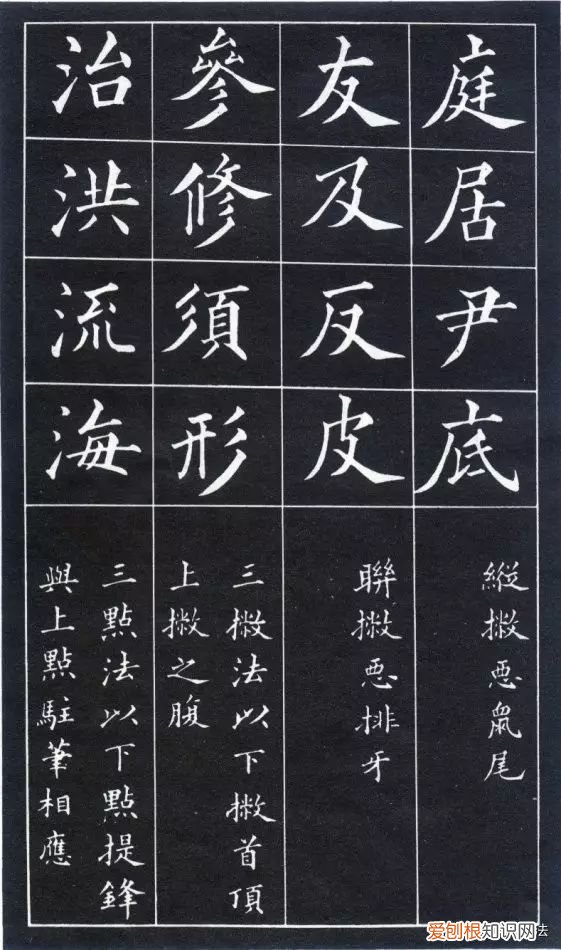 庭居尹底
縱撇惡鼠尾
友及反皮
聯撇惡排牙
參修須形
三撇法以下撇首頂
上撇之腹
治洪流海
三點法以下點提鋒
與上點駐筆相應
爱刨根知识网
法